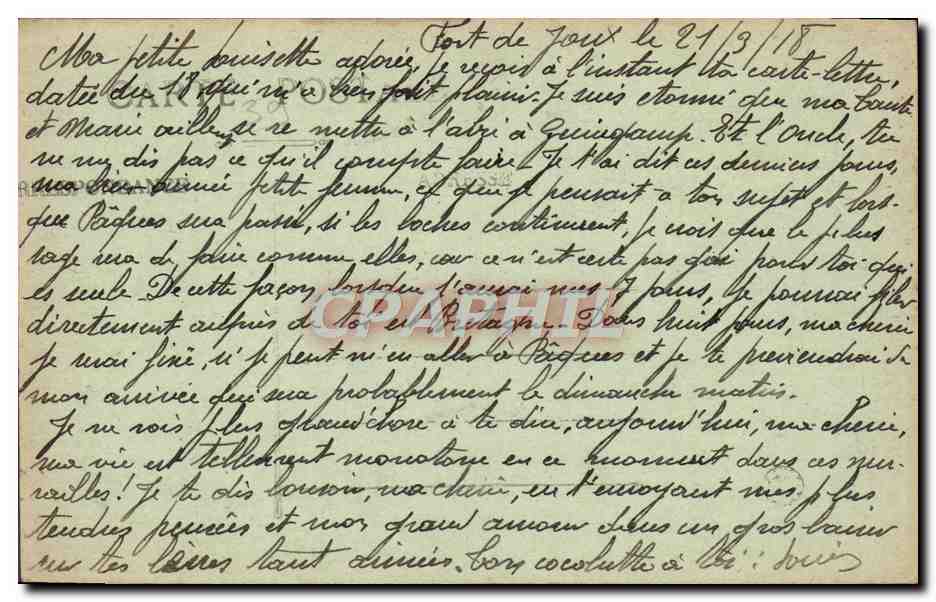 Fort de Joux le 21/3/18
Ma petite Louisette adorée, je reçois à l'instant ta carte-lettre,
datée du 18, qui m'a bien fait plaisir. Je suis étonné que ma tante
CARTE POSTALE
et Marie aillent se remettre à l'abri à Guingamp. Et l'Oncle, tu
ne me dis pas ce qu'il compte faire. Je t'ai dit ces derniers jours,
CORRESPONDANCE
ADRESSE
ma bien-aimée petite femme, ce que je pensais à ton sujet et lors-
que Pâques sera passé, si les boches continuent, je crois que le plus
sage sera de faire comme elles, car ce n'est certe pas gai pour toi qui
es seule. De cette façon, lorsque j'aurai mes 7 jours, je pourrai filer
CPAPHIL
directement auprès de toi en Bretagne. Dans huit jours, ma chérie
je serai fixé, si je peux m'en aller à Pâques et je te préviendrai de
mon arrivée qui sera probablement le dimanche matin.
Je ne vois plus grand'chose à te dire, aujourd'hui, ma chérie,
ma vie est tellement monotone en ce moment dans ces mu-
railles! Je te dis bonsoir, ma chérie, en t'envoyant mes plus
tendres pensées et mon grand amour dans un gros baiser
sur tes lèvres tant aimées. Ton à toi: